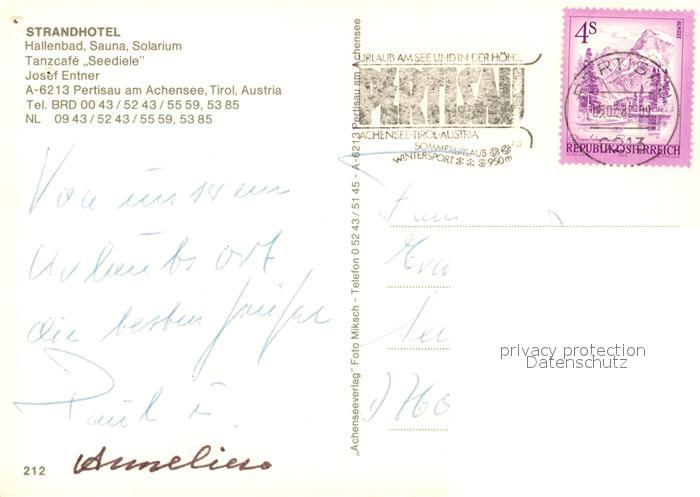 STRANDHOTEL
Hallenbad, Sauna, Solarium
Tanzcafé „Seediele"
Josef Entner
A-6213 Pertisau am Achensee, Tirol, Austria
Tel. BRD 00 43 / 52 43 / 55 59, 53 85
NL 09 43 / 52 43 / 55 59, 53 85
Von unserem
Urlaubsort
die besten Grüße
Paul u.
Annelies
212
„Achenseeverlag" Foto Miksch - Telefon 0 52 43 / 51 45 - A-6213 Pertisau am Achensee
URLAUB AM SEE UND IN DER HÖH'...
PERTISAU
ACHENSEE-TIROL-AUSTRIA
SOMMERURLAUB
WINTERSPORT 950m
4S
ALMSEE
6213
REPUBLIK ÖSTERREICH
privacy protection
Datenschutz